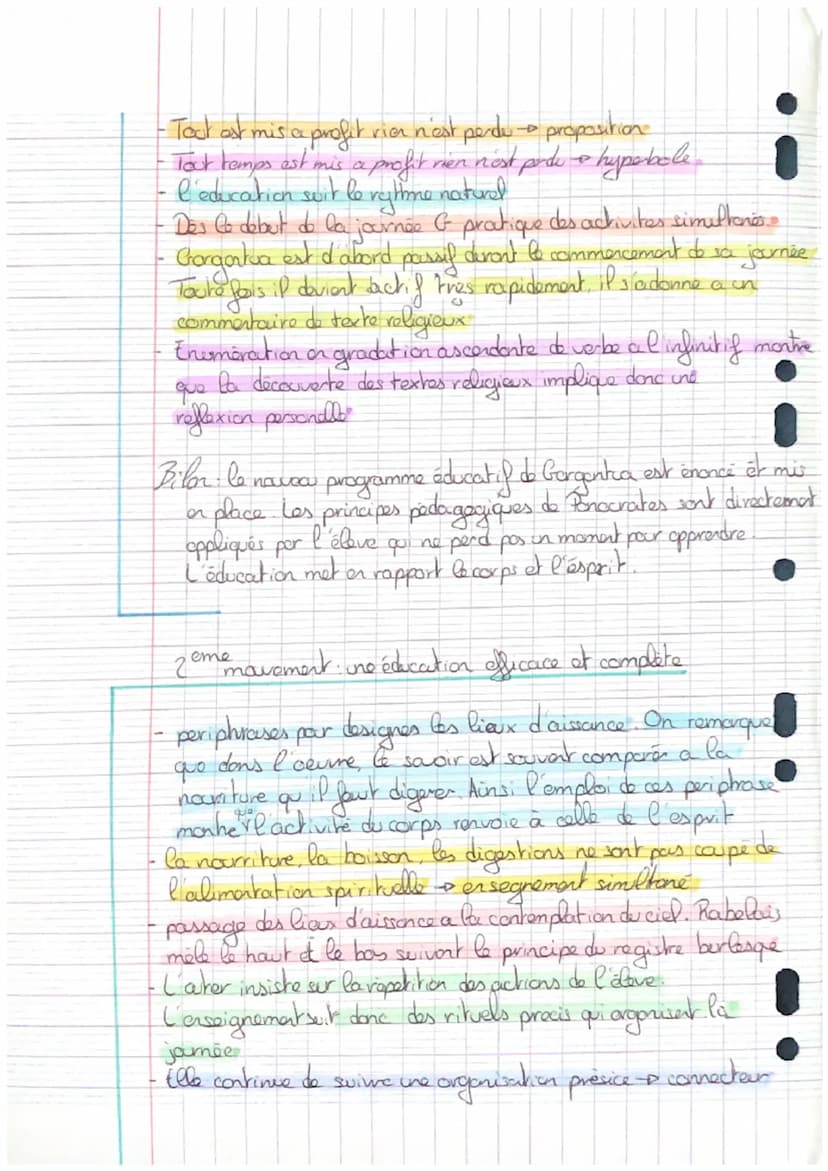 - Tout est mis a profit rien n'est perdu → proposition
- Tout temps est mis a profit rien n'est perdu → hyperbole
- l'education suit le rythme naturel
- Dès le début de la journée G pratique des activites simultanés.
- Gargantua est d'abord passif durant le commencement de sa journée
Toutefois il devient actif très rapidement, il s'adonne a un
commentaire de texte religieux
- Enumération en gradation ascendante de verbe a l'infinitif montre
que la découverte des textes religieux implique donc une
reflexion personelle
Bilan : le nouveau programme éducatif de Gargantua est énoncé et mis
en place. Les principes pédagogiques de Ponocrates sont directement
appliqués par l'élève qui ne perd pas un moment pour apprendre.
L'éducation met en rapport le corps et l'ésprit.
2eme mouvement : une éducation efficace et complète
- periphrases pour designer les lieux d'aissance. On remarque
que dans l'oeuvre, le savoir est souvent comparér a la
nourriture qu'il faut digerer. Ainsi l'emploi de ces periphrase
montre que l'activité du corps renvoie à celle de l'esprit
- la nourriture, la boisson, les digestions ne sont pas coupé de
l'alimentation spirituelle → ensegnement simultané
- passage des lieux d'aissance a la contemplation du ciel. Rabelais
mêle le haut et le bas suivant le principe du registre burlesque
- L'auter insiste sur la répetition des actions de l'élève.
L'enseignement suit donc des rituels precis qui organisent la
journée
- Elle continue de suivre une organisation présice → connecteur